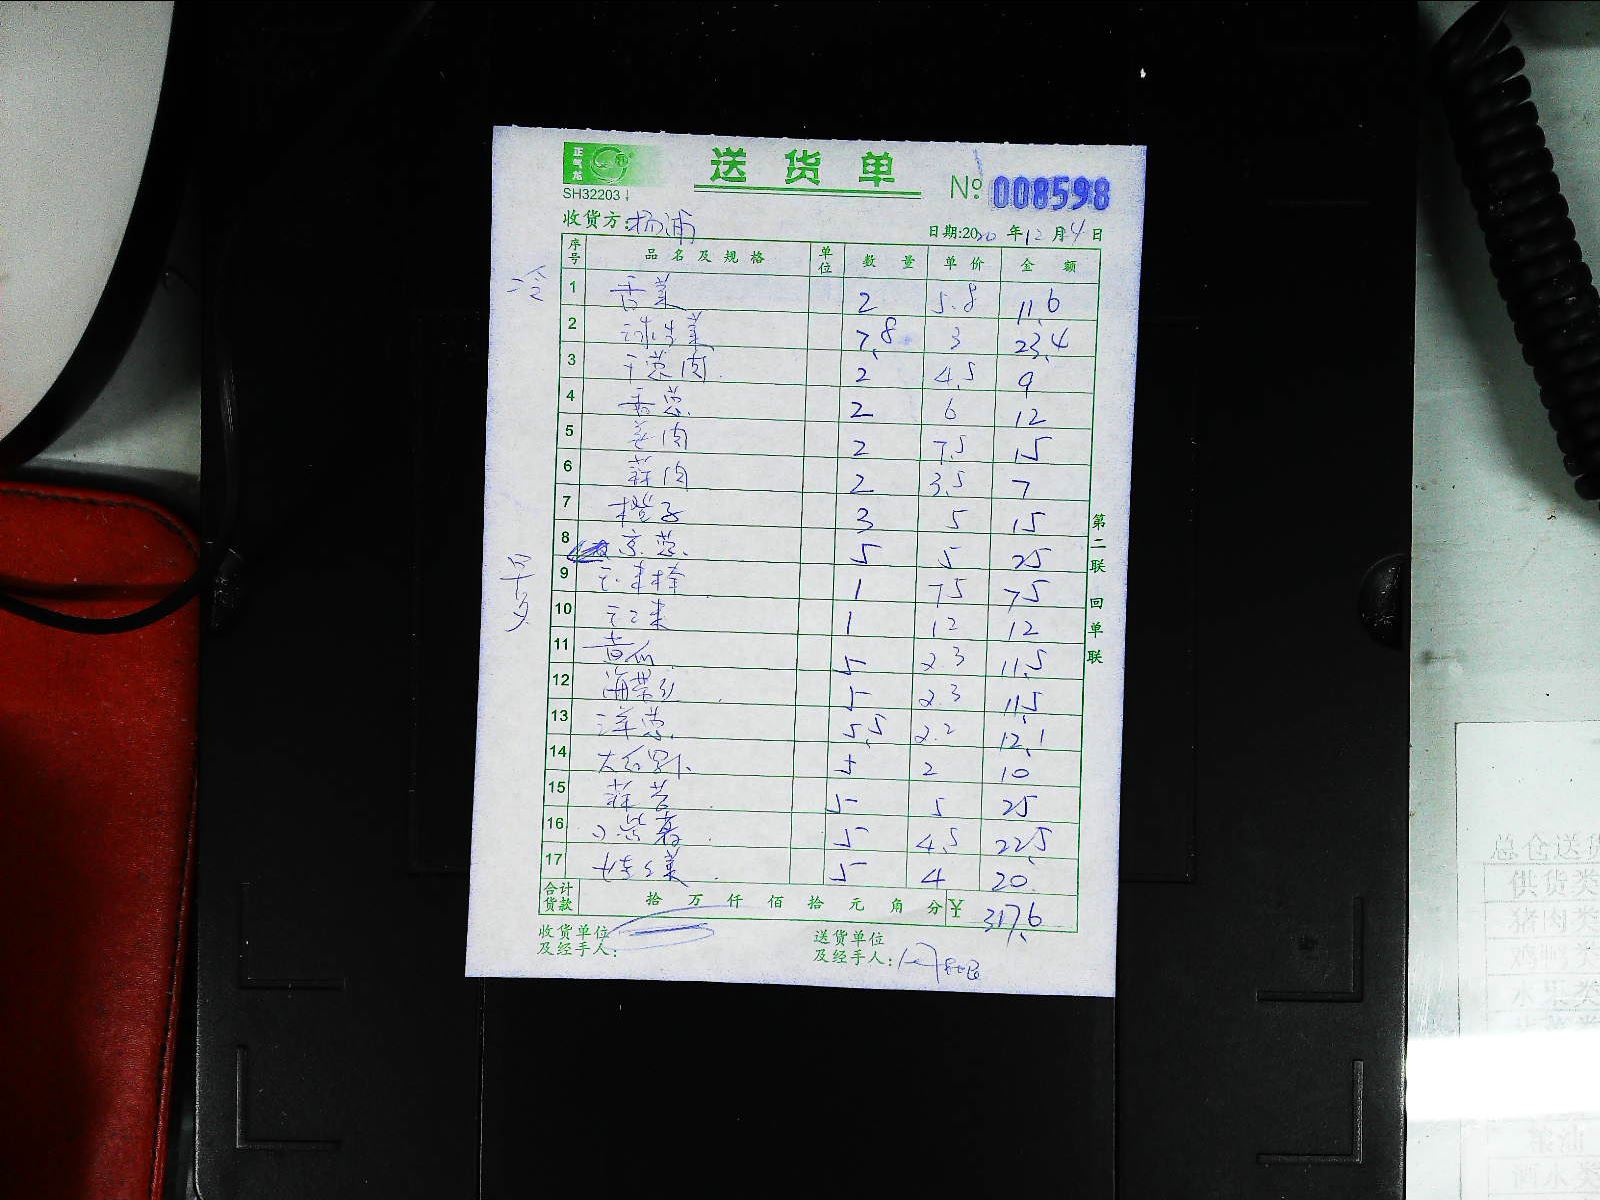 正气龙
送货单
SH32203
No 008598
收货方:杨浦
日期:2020年12月4日
序号 品名及规格 单位 数量 单价 金额
冷
1 香菜 2 5.8 11.6
2 球生菜 7.8 3 23.4
3 干葱肉 2 4.5 9
4 香葱 2 6 12
5 姜肉 2 7.5 15
6 蒜肉 2 3.5 7
7 橙子 3 5 15
8 京葱 5 5 25
9 1 75 75
10 1 12 12
11 黄瓜 5 2.3 11.5
12 海带丝 5 2.3 11.5
13 洋葱 5.5 2.2 12.1
14 5 2 10
15 5 5 25
16 5 4.5 22.5
17 5 4 20
合计货款 拾 万 仟 佰 拾 元 角 分 ¥ 317.6
收货单位及经手人:
送货单位及经手人:
第二联 回单联
总仓送货
供货类
猪肉类
水果类
酒水类